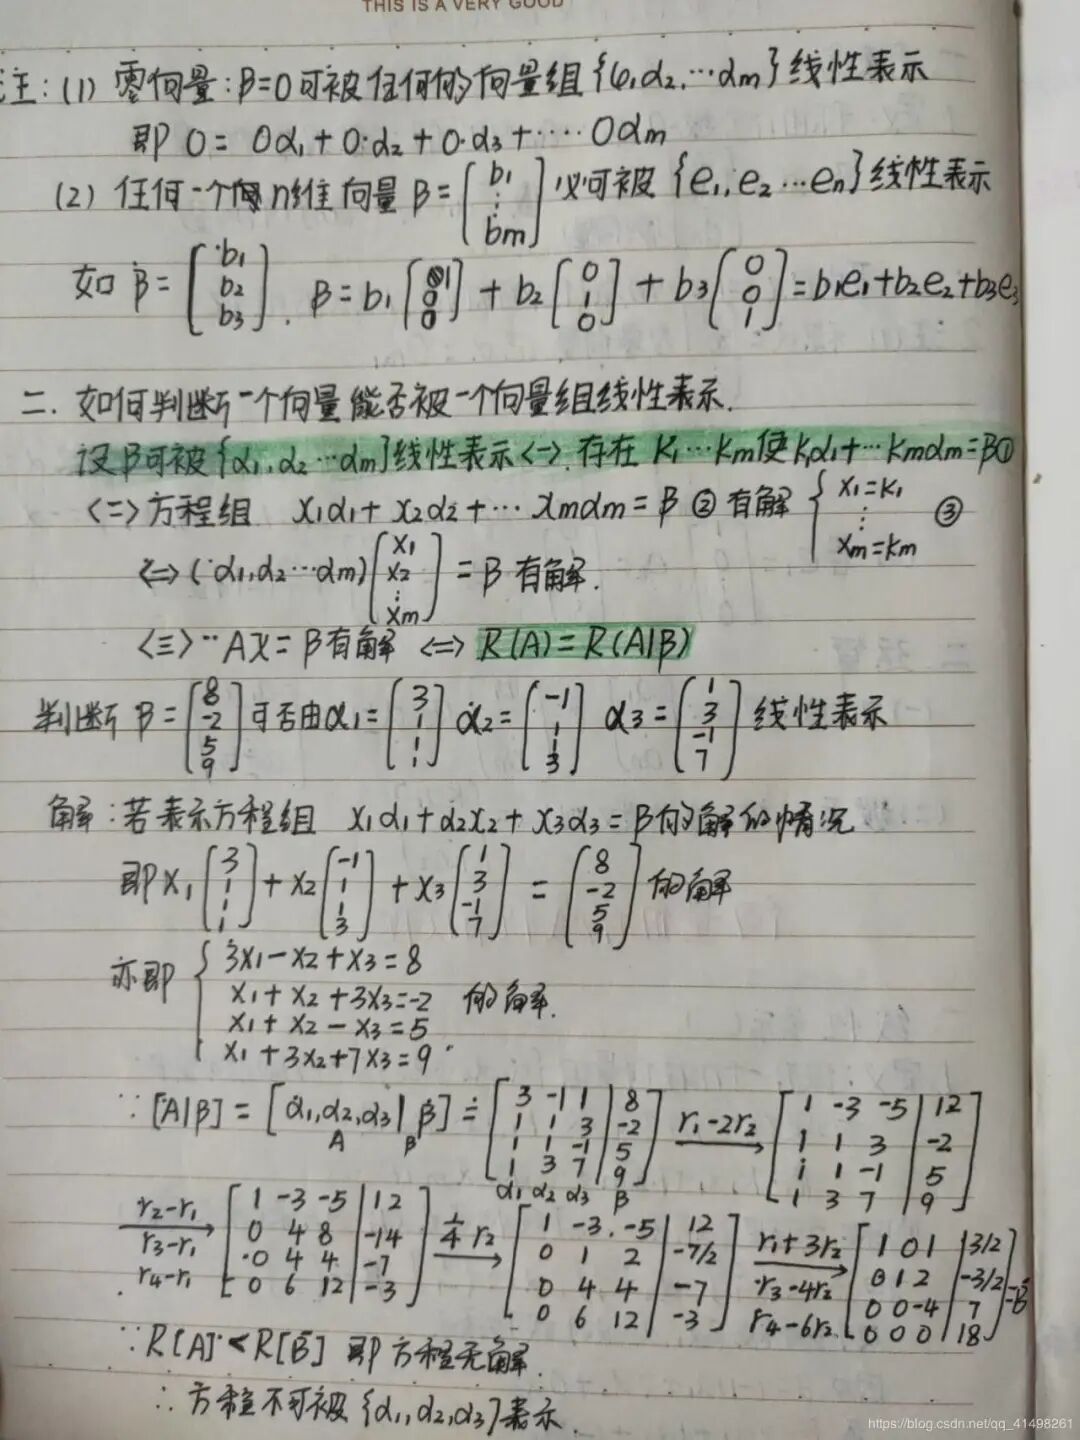 THIS IS A VERY GOOD
注:(1) 零向量:β=0可被任何的向量组{α1,α2,…αm}线性表示
即 0= 0α1+0·α2+0·α3+…·0αm
(2) 任何一个n维向量 β=[b1 ⋮ bm] 必可被 {e1,e2…en}线性表示
如 β=[b1 b2 b3]. β=b1[1 0 0]+b2[0 1 0]+b3[0 0 1]=b1e1+b2e2+b3e3
二. 如何判断一个向量能否被一个向量组线性表示.
设β可被{α1,α2…αm}线性表示<->.存在 K1…Km使k1α1+…Kmαm=β①
<=>方程组 x1α1+x2α2+…xmαm=β ② 有解 { x1=k1 ⋮ xm=km ③
<=>(α1,α2…αm)[x1 x2 ⋮ xm]=β 有解.
<三>··AX=β有解 <=> R(A)=R(A|β)
判断 β=[8 -2 5 9]可否由α1=[3 1 1 1] α2=[-1 1 1 3] α3=[1 3 -1 7] 线性表示
解:若表示方程组 x1α1+α2x2+x3α3=β的解的情况
即x1[3 1 1 1]+x2[-1 1 1 3]+x3[1 3 -1 7]=[8 -2 5 9]的解
亦即 { 3x1-x2+x3=8
x1+x2+3x3=-2 的解.
x1+x2-x3=5
x1+3x2+7x3=9.
∵[A|β]=[α1,α2,α3|β]=[3 -1 1|8 1 1 3|-2 1 1 -1|5 1 3 7|9] r1-2r2 → [1 -3 -5|12 1 1 3|-2 1 1 -1|5 1 3 7|9]
A β α1 α2 α3 β
r2-r1 r3-r1 r4-r1 → [1 -3 -5|12 0 4 8|-14 0 4 4|-7 0 6 12|-3] 1/4 r2 → [1 -3 -5|12 0 1 2|-7/2 0 4 4|-7 0 6 12|-3] r1+3r2 r3-4r2 r4-6r2 → [1 0 1|3/2 0 1 2|-3/2 0 0 -4|7 0 0 0|18]
∵R[A]<R[B̄] 即方程无解.
∴方程不可被{α1,α2,α3}表示.
https://blog.csdn.net/qq_41498261